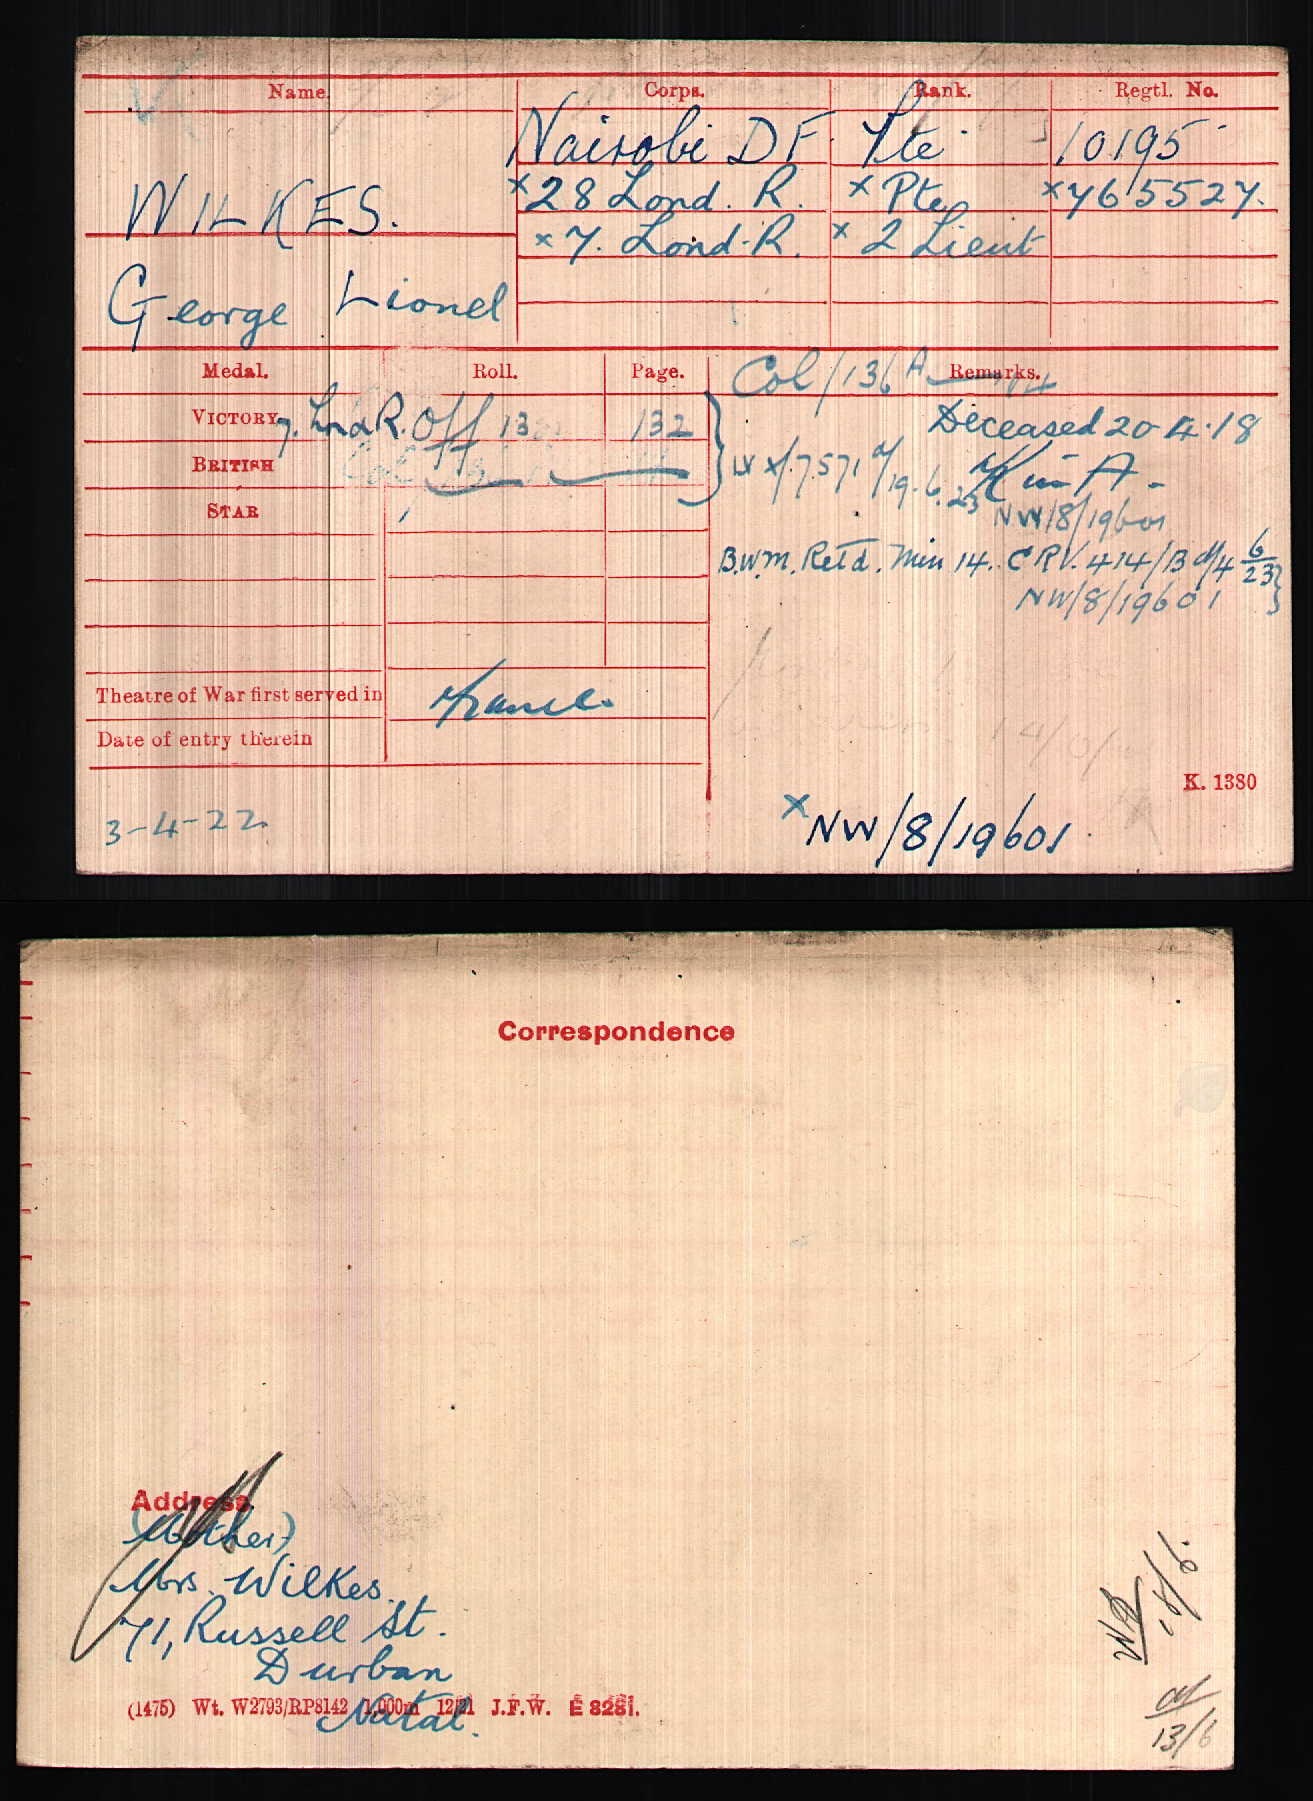 Name. Corps. Rank. Regtl. No.
Nairobi D F. Pte 10195
WILKES. x 28 Lond. R. x Pte x 765527.
x 7. Lond. R. x 2 Lieut
George Lionel
Medal. Roll. Page. Remarks.
Col/136 A 14
VICTORY 7. Lond R. Off 13 132 Deceased 20.4.18
BRITISH IV x/7571 d/19.6.23 K in A.
STAR NW/8/19601
B.W.M. Retd. Min 14. CRV. 414/B d/4 6/23
NW/8/19601
Theatre of War first served in France.
Date of entry therein
K. 1380
3-4-22. x NW/8/19601
Correspondence
Address.
(Mother)
Mrs. Wilkes.
71, Russell St.
Durban
(1475) Wt. W2793/RP8142 1,000m 12/21 J.F.W. E 8281.
Natal.
18/6.
13/6